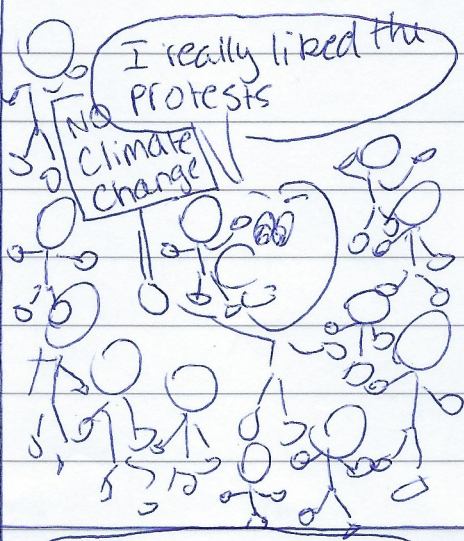 I really liked the
protests
NO
Climate
Change